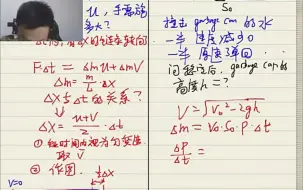 u, 手意为
多大?
FΔt = Δmu + ΔmV
Δm = m/L · Δx
Δx与Δt的关系?
Δx = (u+V)/2 · Δt
① 短时间内视为匀变速
取 V
② 作图
½Δx
V=0
S₀
撞击 garbage can 的水
一半 速度减为0
一半 原速弹回
问稳定后, garbage can的
高度 h = ?
V = √(V₀²-2gh)
Δm = V₀·S₀·ρ·Δt
ΔP/Δt =